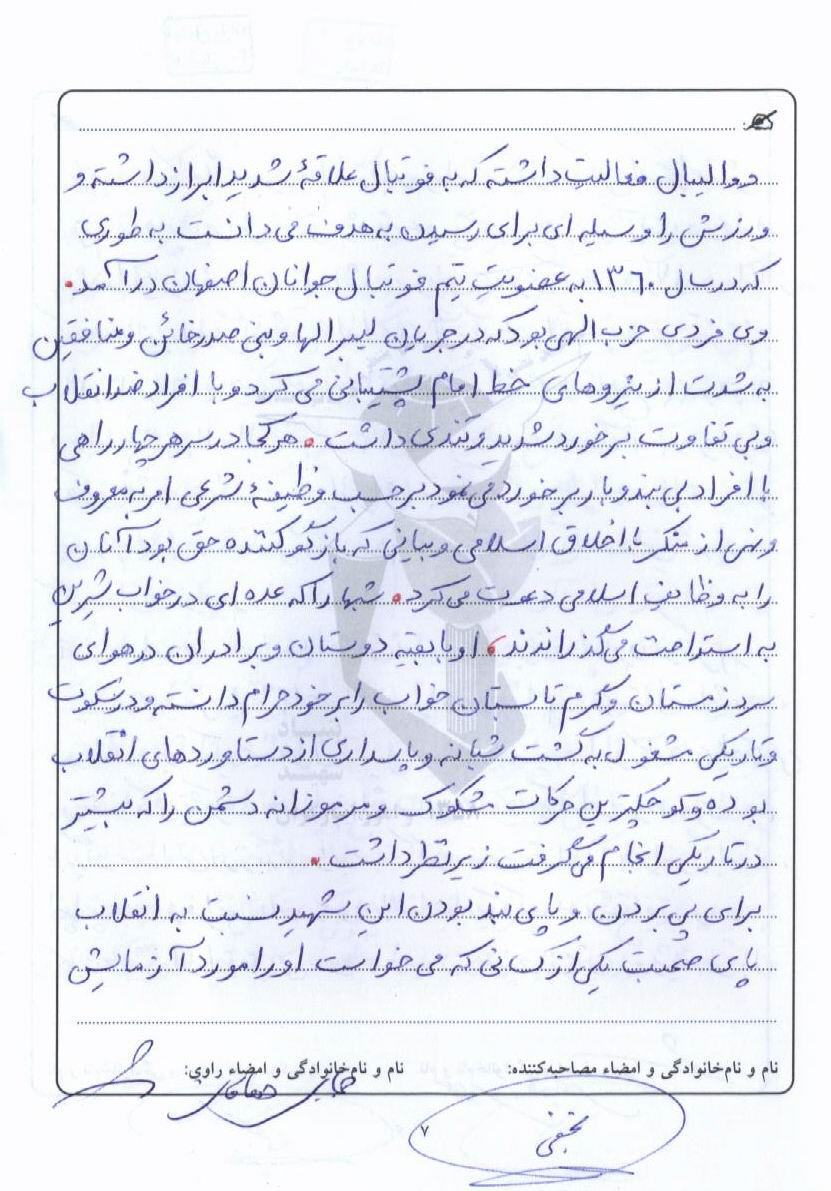 و والیبال فعالیت داشته که به فوتبال علاقهٔ شدید ابراز داشته و
ورزش را وسیله ای برای رسیدن به هدف می دانست به طوری
که در سال ۱۳۶۰ به عضویت تیم فوتبال جوانان اصفهان در آمد.
وی فردی حزب الهی بود که در جریان لیبرالها و بنی صدر خائن و منافقین
به شدت از نیروهای خط امام پشتیبانی می کرد و با افراد ضد انقلاب
و بی تفاوت برخورد شدید و تندی داشت. هر کجا در سر هر چهار راهی
با افراد بی بند و بار برخورد می نمود برحسب وظیفهٔ شرعی امر به معروف
و نهی از منکر با اخلاق اسلامی و بیانی که بازگو کننده حق بود آنان
را به وظایف اسلامی دعوت می کرد. شبها را که عده ای در خواب شیرین
به استراحت می گذراندند، او با بقیه دوستان و برادران در هوای
سرد زمستان و گرم تابستان خواب را بر خود حرام دانسته و در سکوت
و تاریکی مشغول به گشت شبانه و پاسداری از دستاوردهای انقلاب
بوده و کوچکترین حرکات مشکوک و مرموزانه دشمن را که بیشتر
در تاریکی انجام می گرفت زیر نظر داشت.
برای پی بردن و پای بند بودن این شهید نسبت به انقلاب
پای صحبت یکی از کسانی که می خواست او را مورد آزمایش
نام و نام‌خانوادگی و امضاء مصاحبه‌کننده: نام و نام‌خانوادگی و امضاء راوی:
نجفی
۷